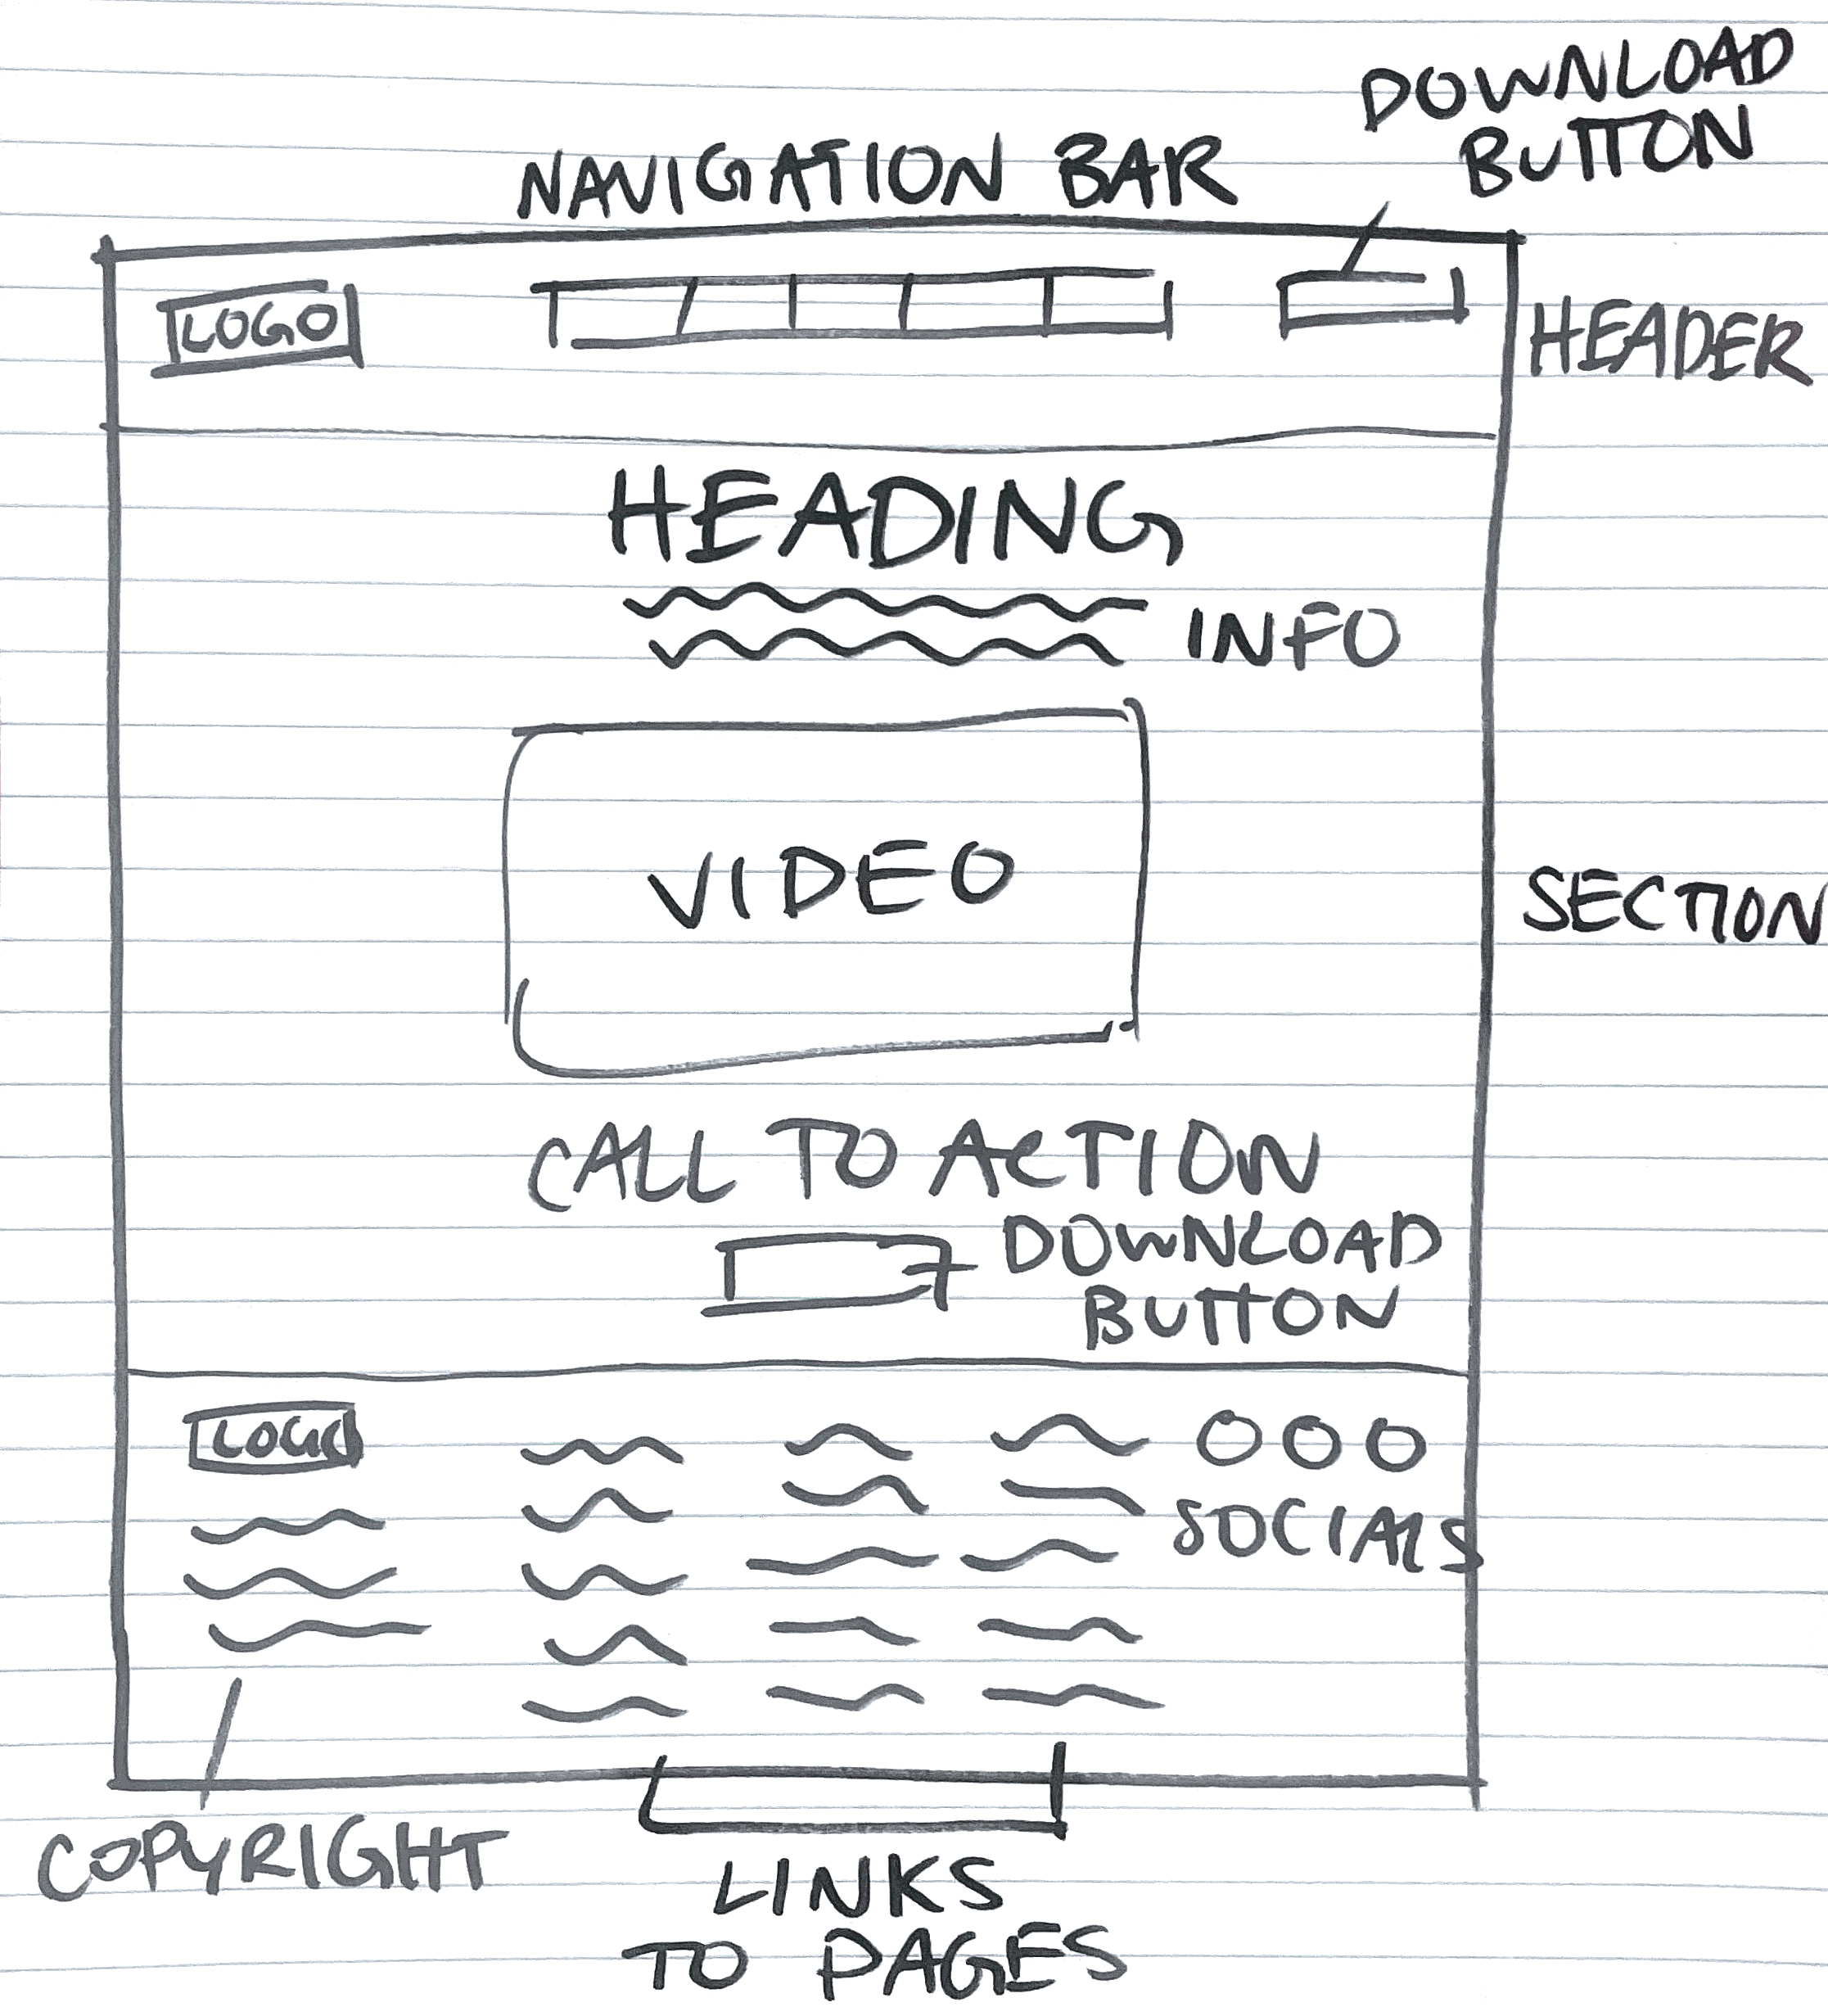 DOWNLOAD
BUTTON
NAVIGATION BAR
LOGO
HEADER
HEADING
INFO
VIDEO
SECTION
CALL TO ACTION
DOWNLOAD
BUTTON
LOGO
SOCIALS
COPYRIGHT
LINKS
TO PAGES